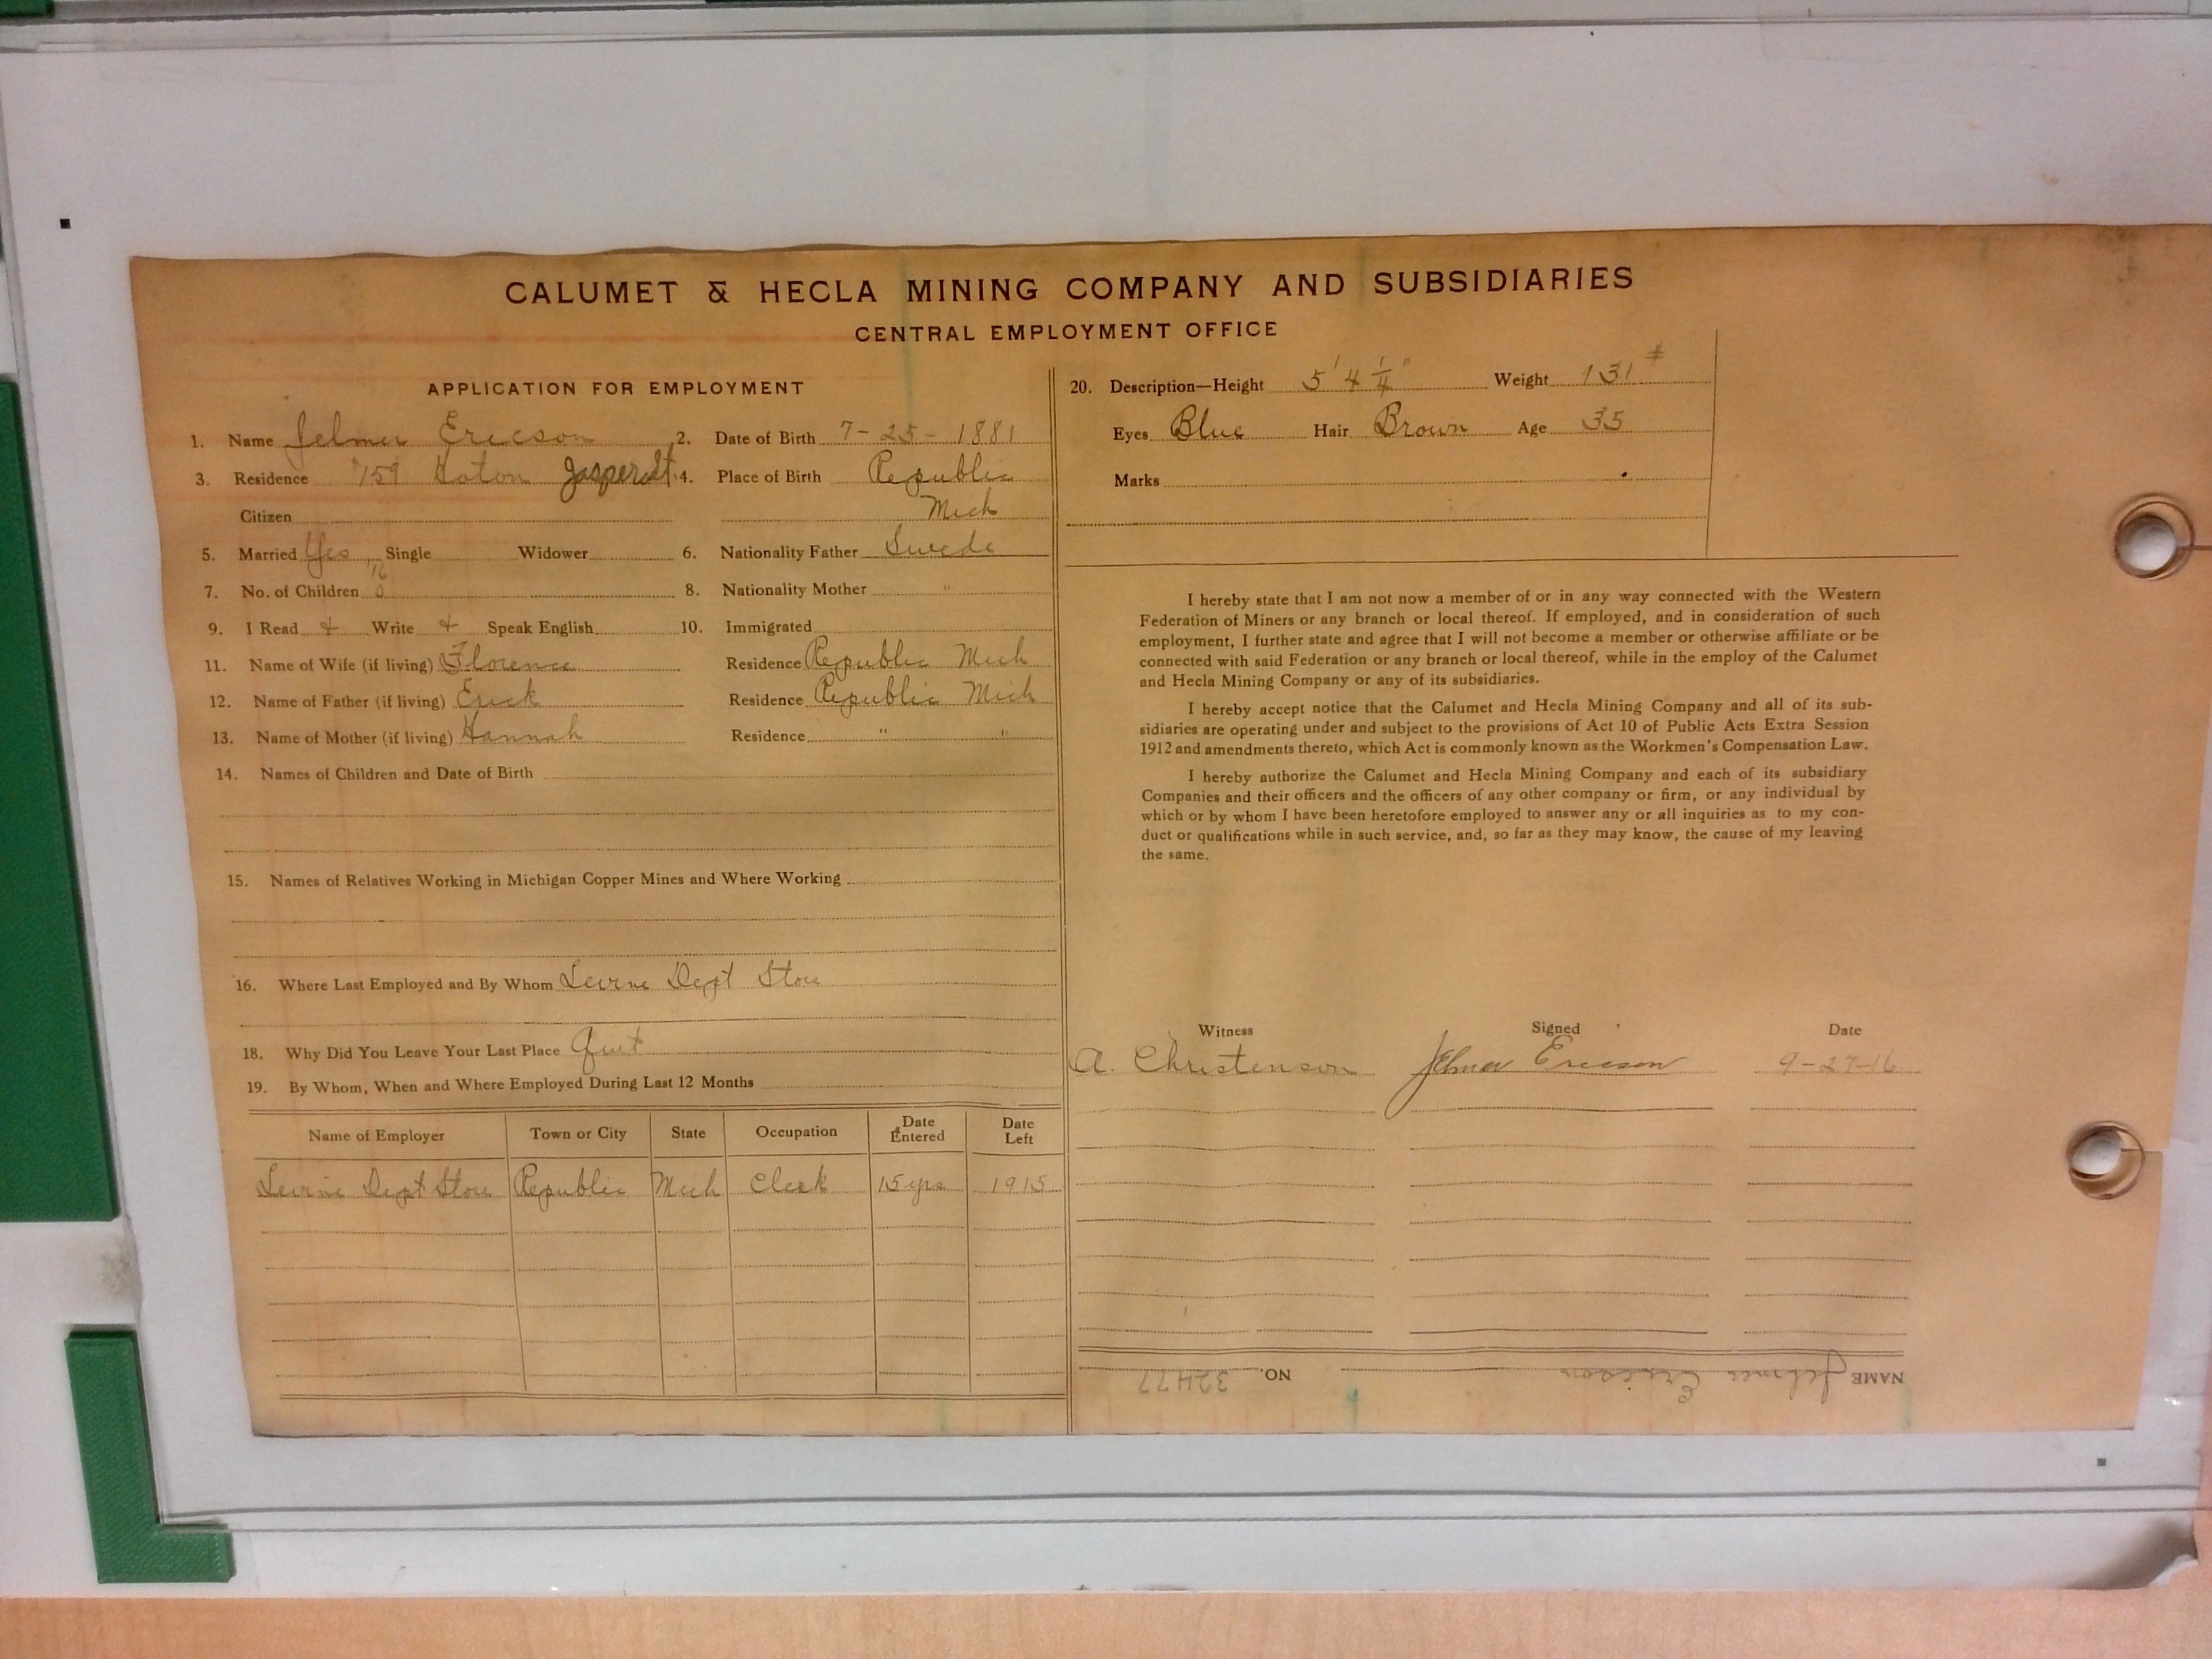 CALUMET & HECLA MINING COMPANY AND SUBSIDIARIES
CENTRAL EMPLOYMENT OFFICE
APPLICATION FOR EMPLOYMENT
1. Name Jelmer Ericson 2. Date of Birth 7-25-1881
3. Residence #159 Jasper St. 4. Place of Birth Republic
Citizen Mich
5. Married Yes Single Widower 6. Nationality Father Swede
7. No. of Children 0 8. Nationality Mother "
9. I Read + Write + Speak English 10. Immigrated
11. Name of Wife (if living) Florence Residence Republic Mich
12. Name of Father (if living) Erick Residence Republic Mich
13. Name of Mother (if living) Hannah Residence " "
14. Names of Children and Date of Birth
15. Names of Relatives Working in Michigan Copper Mines and Where Working
16. Where Last Employed and By Whom Levine Dept Store
18. Why Did You Leave Your Last Place Quit
19. By Whom, When and Where Employed During Last 12 Months
Name of Employer Town or City State Occupation Date Entered Date Left
Levine Dept Store Republic Mich Clerk 15 yrs 1915
20. Description—Height 5' 4 1/4" Weight 131 #
Eyes Blue Hair Brown Age 35
Marks
I hereby state that I am not now a member of or in any way connected with the Western
Federation of Miners or any branch or local thereof. If employed, and in consideration of such
employment, I further state and agree that I will not become a member or otherwise affiliate or be
connected with said Federation or any branch or local thereof, while in the employ of the Calumet
and Hecla Mining Company or any of its subsidiaries.
I hereby accept notice that the Calumet and Hecla Mining Company and all of its sub-
sidiaries are operating under and subject to the provisions of Act 10 of Public Acts Extra Session
1912 and amendments thereto, which Act is commonly known as the Workmen's Compensation Law.
I hereby authorize the Calumet and Hecla Mining Company and each of its subsidiary
Companies and their officers and the officers of any other company or firm, or any individual by
which or by whom I have been heretofore employed to answer any or all inquiries as to my con-
duct or qualifications while in such service, and, so far as they may know, the cause of my leaving
the same.
Witness Signed Date
A. Christenson Jelmer Ericson 9-27-16
NAME Jelmer Ericson NO. 32477